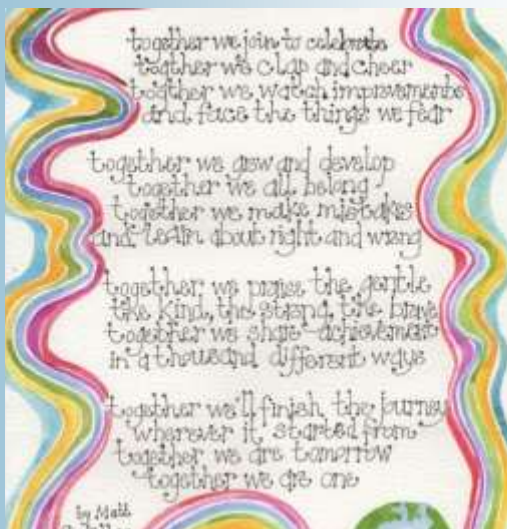 together we join to celebrate
together we clap and cheer
together we watch improvements
and face the things we fear
together we grow and develop
together we all belong
together we make mistakes
and learn about right and wrong
together we praise the gentle
the kind, the strong, the brave
together we share achievement
in a thousand different ways
together we'll finish the journey
wherever it started from
together we are tomorrow
together we are one
by Matt